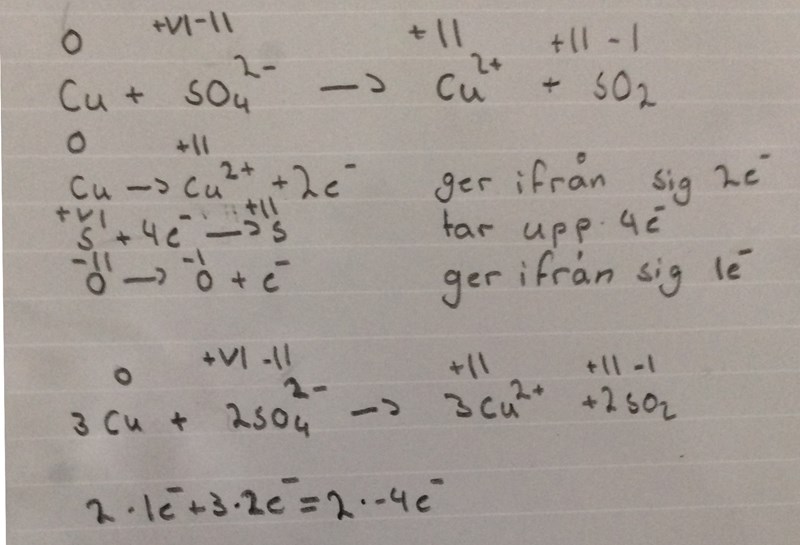 0 +VI -II +II +II -I
Cu + SO₄²⁻ → Cu²⁺ + SO₂
0 +II
Cu → Cu²⁺ + 2e⁻ ger ifrån sig 2e⁻
+VI +II
S + 4e⁻ → S tar upp 4e⁻
-II -I
O → O + e⁻ ger ifrån sig 1e⁻
0 +VI -II +II +II -I
3Cu + 2SO₄²⁻ → 3Cu²⁺ + 2SO₂
2·1e⁻+3·2e⁻=2·-4e⁻